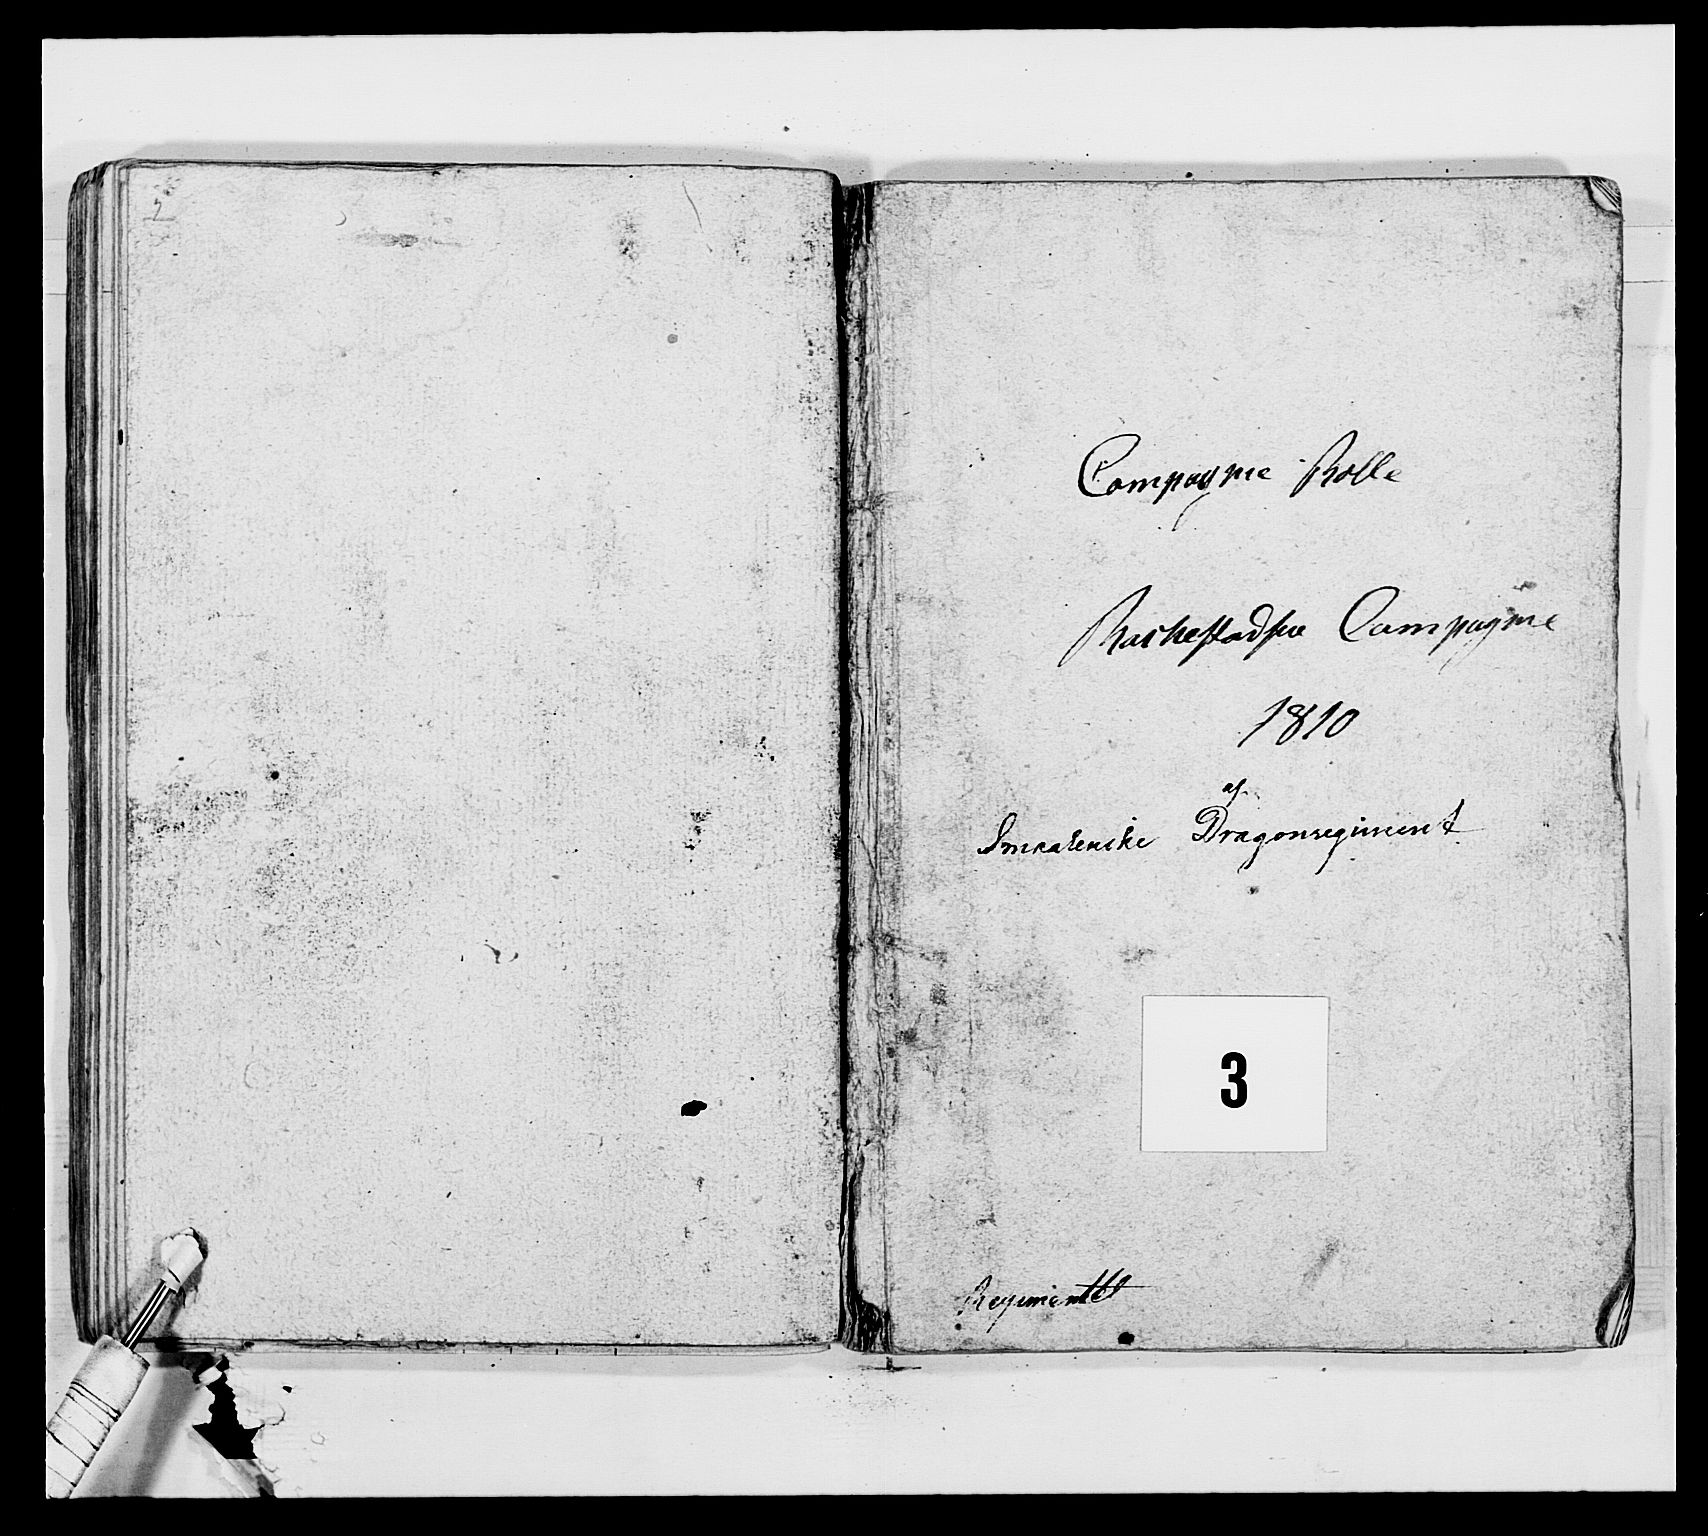 Compagnie Rolle
Rachestadske Compagnie
1810
af
Smaalenske Dragonregiment
3
Regimentet